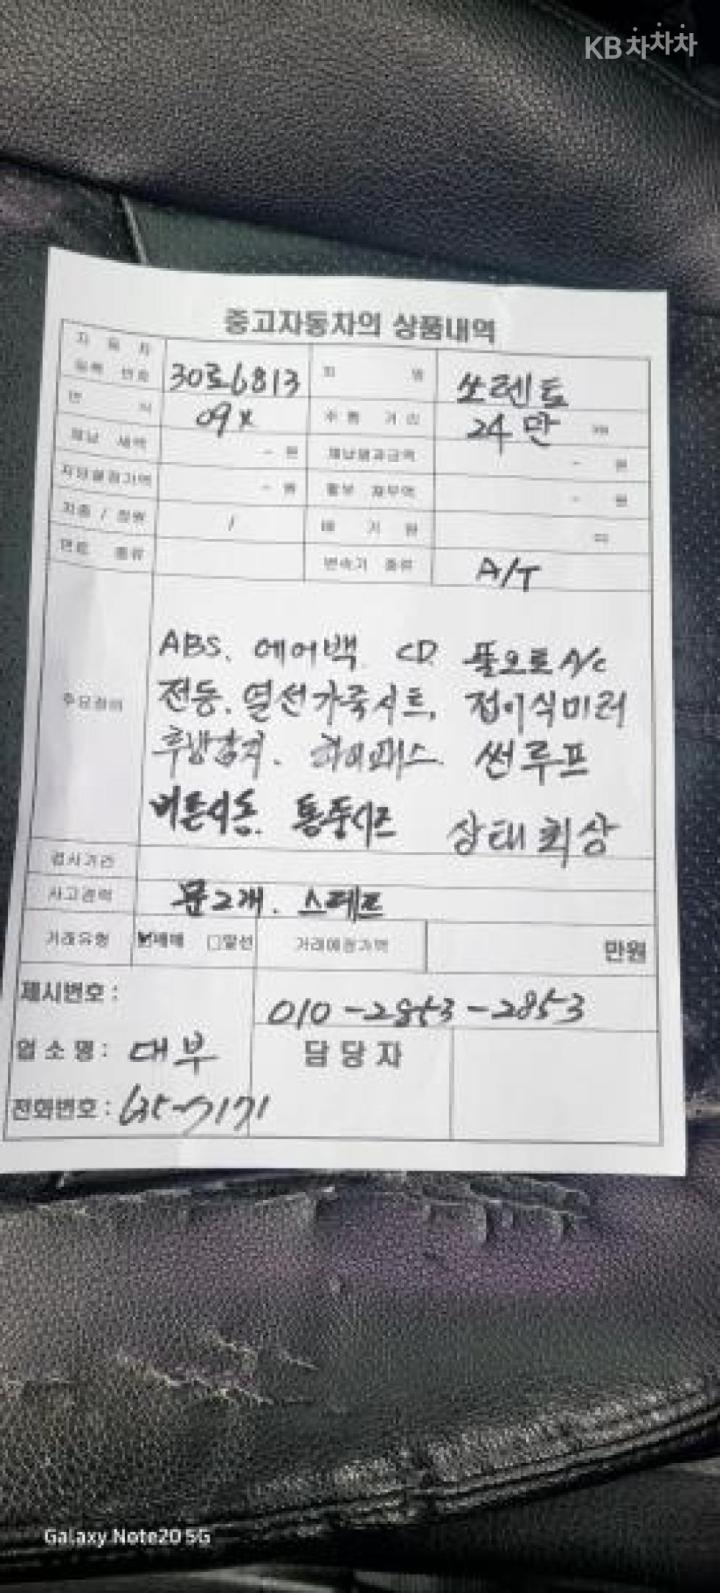 KB차차차
중고자동차의 상품내역
자동차
등록 번호 30로6813 차 명 쏘렌토
년 식 09 주행 거리 24만 km
체납 세액 - 원 체납범과금액 - 원
차량결정가액 - 원 할부 채무액 - 원
차종 / 정원 / 배기량 cc
연료 종류 변속기 종류 A/T
주요장비
ABS. 에어백 CD 풀오토 A/C
전동. 열선가죽시트. 접이식미러
후방감지. 하이패스. 썬루프
버튼시동. 통풍시즈 상태최상
검사기간
사고경력 문2개. 스페트
거래유형 매매 알선 거래예정가액 만원
제시번호 :
010-2853-2853
업소명 : 대부 담당자
전화번호 : 635-7171
Galaxy Note20 5G